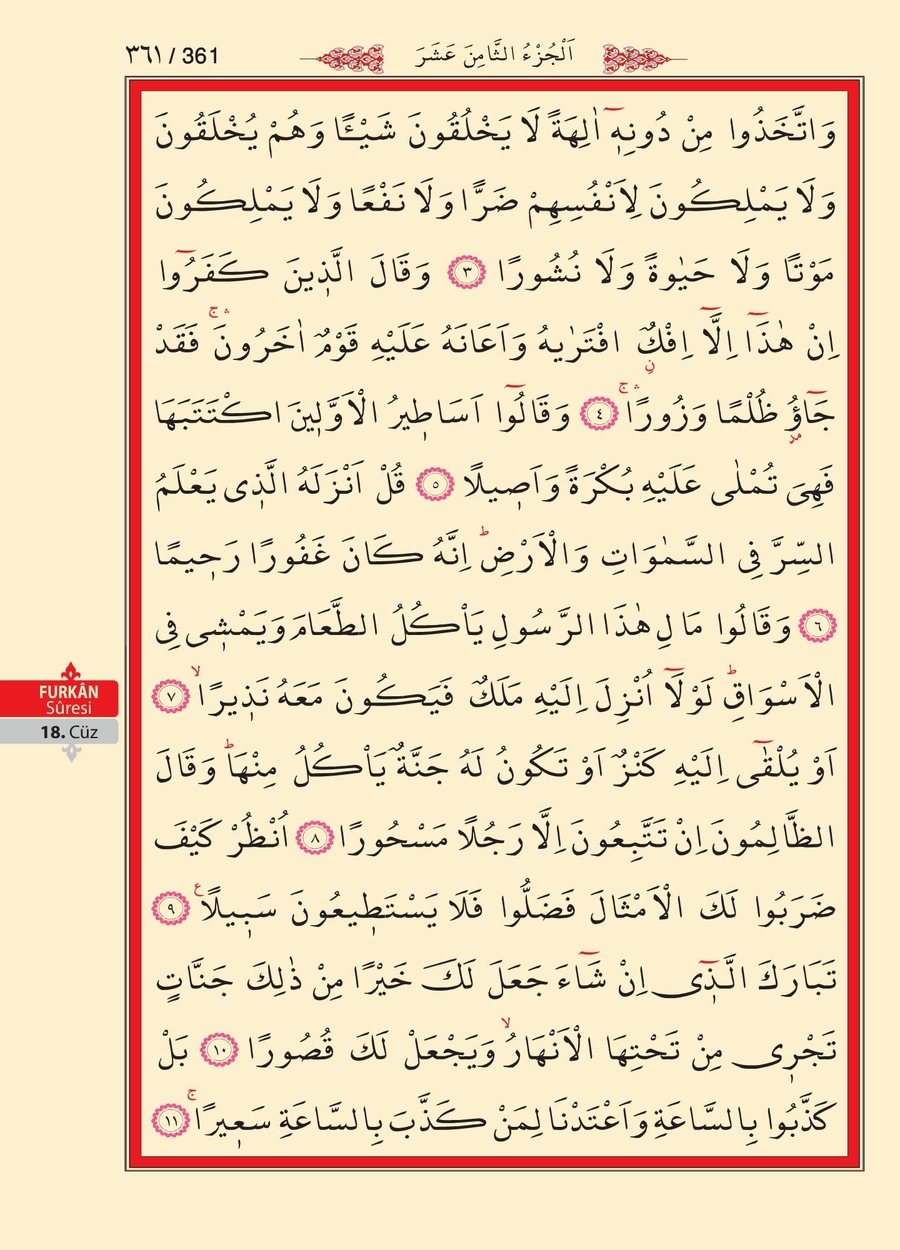 ٣٦١ / 361
اَلْجُزْءُ الثَّامِنَ عَشَرَ
وَاتَّخَذُوا مِنْ دُونِه۪ٓ اٰلِهَةً لَا يَخْلُقُونَ شَيْـًٔا وَهُمْ يُخْلَقُونَ
وَلَا يَمْلِكُونَ لِاَنْفُسِهِمْ ضَرًّا وَلَا نَفْعًا وَلَا يَمْلِكُونَ
مَوْتًا وَلَا حَيٰوةً وَلَا نُشُورًا ﴿٣﴾ وَقَالَ الَّذ۪ينَ كَفَرُٓوا
اِنْ هٰذَٓا اِلَّٓا اِفْكٌۨ افْتَرٰيهُ وَاَعَانَهُ عَلَيْهِ قَوْمٌ اٰخَرُونَۚۛ فَقَدْ
جَٓاؤُ۫ ظُلْمًا وَزُورًاۚۛ ﴿٤﴾ وَقَالُٓوا اَسَاط۪يرُ الْاَوَّل۪ينَ اكْتَتَبَهَا
فَهِيَ تُمْلٰى عَلَيْهِ بُكْرَةً وَاَص۪يلًا ﴿٥﴾ قُلْ اَنْزَلَهُ الَّذ۪ى يَعْلَمُ
السِّرَّ فِى السَّمٰوَاتِ وَالْاَرْضِۜ اِنَّهُ كَانَ غَفُورًا رَح۪يمًا
﴿٦﴾ وَقَالُوا مَالِ هٰذَا الرَّسُولِ يَاْكُلُ الطَّعَامَ وَيَمْش۪ى فِى
الْاَسْوَاقِۜ لَوْلَٓا اُنْزِلَ اِلَيْهِ مَلَكٌ فَيَكُونَ مَعَهُ نَذ۪يرًاۙ ﴿٧﴾
اَوْ يُلْقٰٓى اِلَيْهِ كَنْزٌ اَوْ تَكُونُ لَهُ جَنَّةٌ يَاْكُلُ مِنْهَاۜ وَقَالَ
الظَّالِمُونَ اِنْ تَتَّبِعُونَ اِلَّا رَجُلًا مَسْحُورًا ﴿٨﴾ اُنْظُرْ كَيْفَ
ضَرَبُوا لَكَ الْاَمْثَالَ فَضَلُّوا فَلَا يَسْتَط۪يعُونَ سَب۪يلًاࣖ ﴿٩﴾
تَبَارَكَ الَّذ۪ٓى اِنْ شَٓاءَ جَعَلَ لَكَ خَيْرًا مِنْ ذٰلِكَ جَنَّاتٍ
تَجْر۪ى مِنْ تَحْتِهَا الْاَنْهَارُۙ وَيَجْعَلْ لَكَ قُصُورًا ﴿١٠﴾ بَلْ
كَذَّبُوا بِالسَّاعَةِ وَاَعْتَدْنَا لِمَنْ كَذَّبَ بِالسَّاعَةِ سَع۪يرًاۚ ﴿١١﴾
FURKÂN
Sûresi
18. Cüz